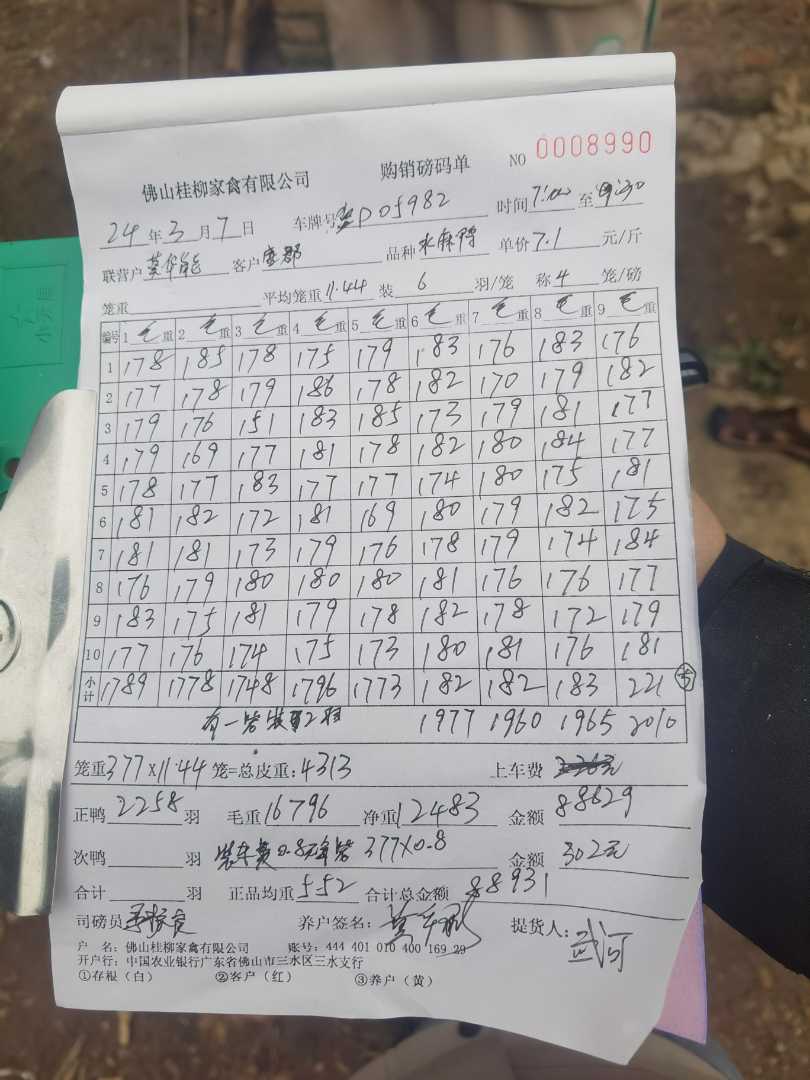 佛山桂柳家禽有限公司 购销磅码单 NO 0008990
24年3月7日 车牌号 D05982 时间7:00至
联营户 莫华能 客户 品种 水麻鸭 单价7.1元/斤
笼重 平均笼重11.44 装6羽/笼 称4笼/磅
编号 1毛重 2毛重 3毛重 4毛重 5毛重 6毛重 7毛重 8毛重 9毛重
1 178 185 178 175 179 183 176 183 176
2 177 178 179 186 178 182 170 179 182
3 179 176 151 183 185 173 179 181 177
4 179 169 177 181 178 182 180 184 177
5 178 177 183 177 177 174 180 175 181
6 181 182 172 181 169 180 179 182 175
7 181 181 173 179 176 178 179 174 184
8 176 179 180 180 180 181 176 176 177
9 183 175 181 179 178 182 178 172 179
10 177 176 174 175 173 180 181 176 181
小计 1789 1778 1748 1796 1773 182 182 183 221
有一笼装2羽 1977 1960 1965 2010
笼重377×11.44笼=总皮重:4313 上车费
正鸭2258羽 毛重16796 净重12483 金额88629
次鸭羽 装车费0.8元每笼 377×0.8 金额302元
合计羽 正品均重5.52 合计总金额88931
司磅员 养户签名: 提货人:
户 名:佛山桂柳家禽有限公司 账号:444 401 010 400 169 29
开户行:中国农业银行广东省佛山市三水区三水支行
①存根(白) ②客户(红) ③养户(黄)